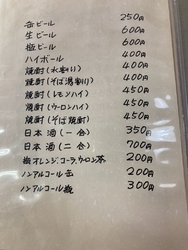 缶ビール 250円
生ビール 600円
瓶ビール 600円
ハイボール 400円
焼酎(水割り) 400円
焼酎(そば湯割り) 400円
焼酎(レモンハイ) 450円
焼酎(ウーロンハイ) 450円
焼酎(そば焼酎) 450円
日本酒(一合) 350円
日本酒(二合) 700円
瓶オレンジ、コーラ、ウーロン茶 200円
ノンアルコール缶 200円
ノンアルコール瓶 300円